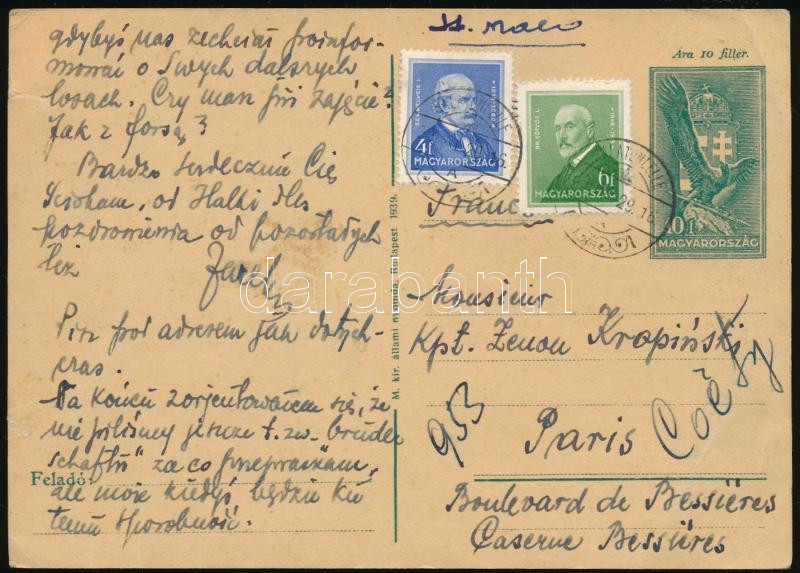 gdybyś nas zechciał poinfor-
mować o Swych dalszych
losach. Czy masz już zajęcie?
Jak z forsą?
Bardzo serdecznie Cię
ściskam, od Halki dla
pozdrowienia od pozostałych
też
Pisz pod adresem jak dotych-
czas.
Na końcu zorjentowałem się, że
nie piliśmy jeszcze t.zw. „bruder
schaftu" za co przepraszam,
ale może kiedyś będzie ku
temu sposobność.
Feladó:
M. kir. állami nyomda, Budapest. 1939.
Ára 10 fillér.
SZÉCHENYI I.
4f
MAGYARORSZÁG
BR. EÖTVÖS L.
6f
MAGYARORSZÁG
10f
MAGYARORSZÁG
France
Monsieur
Kpt. Zenon Kropiński
953
Paris
Boulevard de Bessières
Caserne Bessières
darabanth